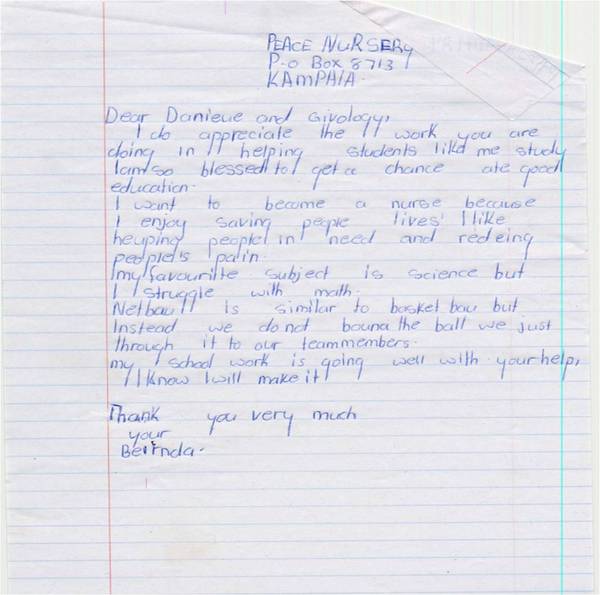 PEACE NURSERY
P.o Box 8713
KAMPHIA.
Dear Danieue and Givology,
I do appreciate the work you are
doing in helping students like me study
Iamso blessed to get a chance ate good
education.
I want to become a nurse because
I enjoy saving people lives' I like
heuping people in need and redeing
people's pain.
my favourite subject is science but
I struggle with math.
Netbau is similar to basket bau but
Instead we do not bouna the ball we just
through it to our teammembers.
my school work is going well with your help,
I Know I will make it!
Thank you very much
your
Berinda.